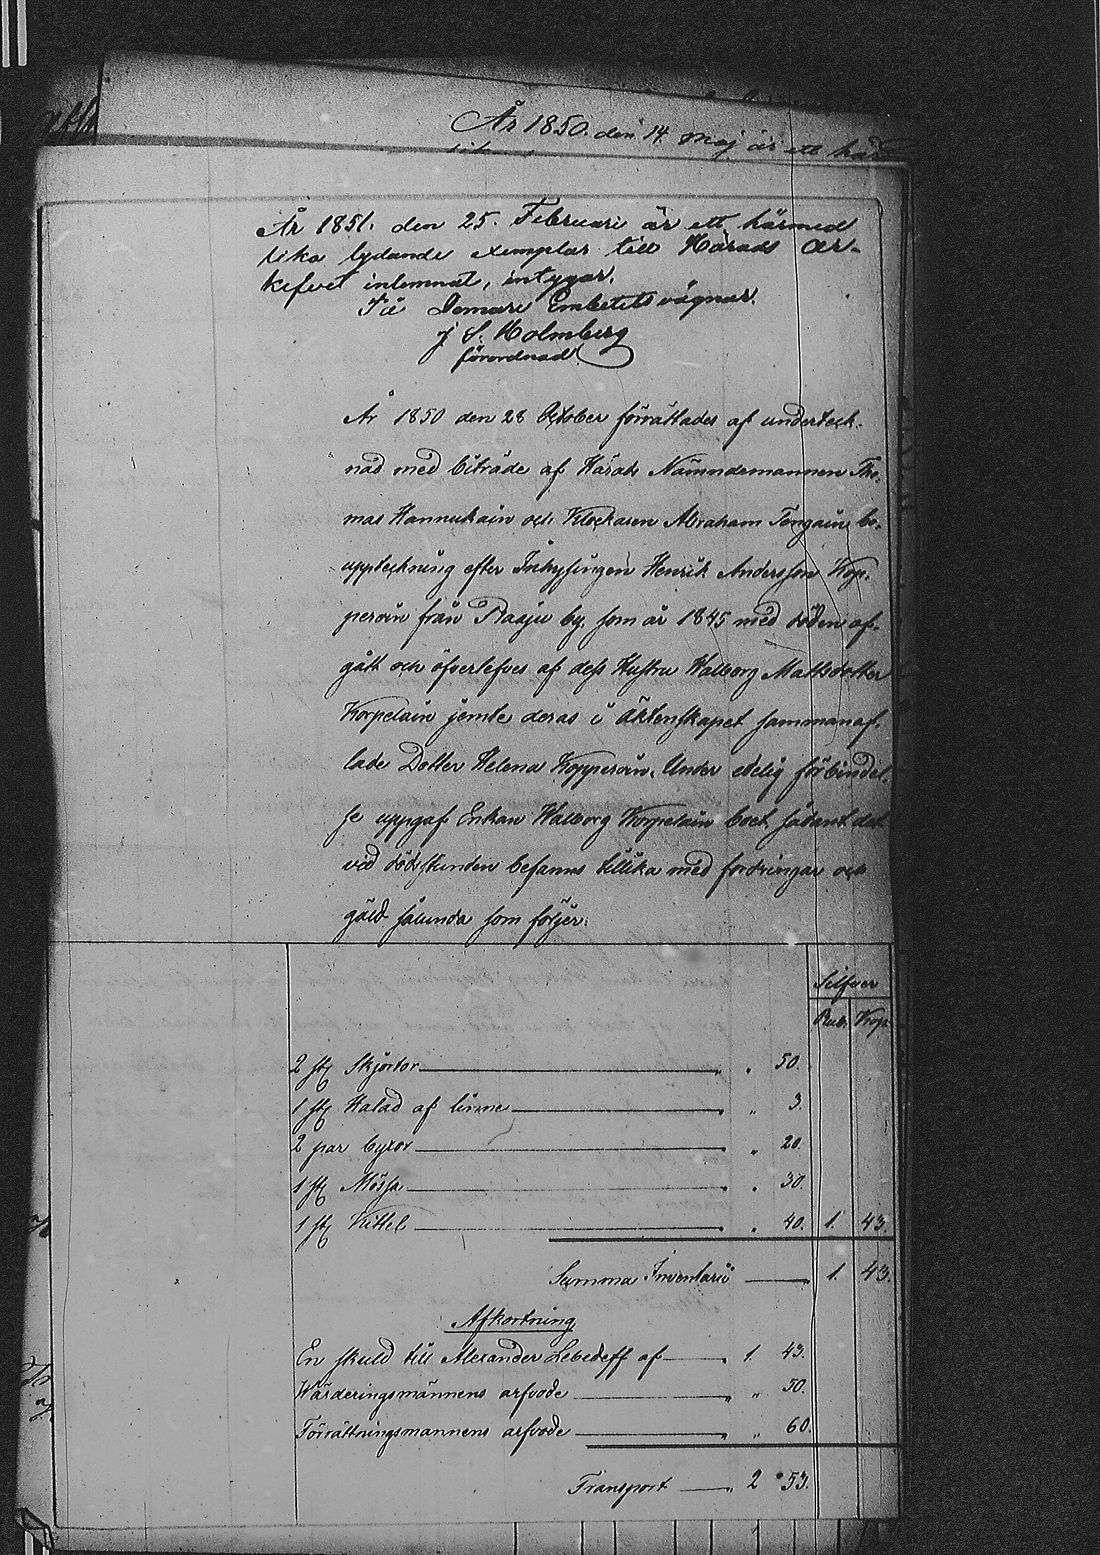 År 1850. den 14 Maj är ett här
År 1851. den 25. Februari är ett härmed
lika lydande exemplar till Härads Ar-
kifvet inlemnat, intygar.
På Domare Embetets vägnar.
J S. Holmberg
förordnad.
År 1850 den 28 October förrättades af underteck-
nad med biträde af Härads Nämndemannen Tho-
mas Hannukain och Klockaren Abraham Tengain, bo-
uppteckning efter Inhysingen Henrik Andersson Kop-
peroin från Raaju by, som år 1845 med döden af-
gått och öfverlefves af dess Hustru Walborg Mattsdotter
Korpelain jemte deras i äktenskapet sammanaf-
lade Dotter Helena Kopperoin. Under edelig förbindel-
se uppgaf Enkan Walborg Korpelain boet sådant det
vid dödsstunden befanns tillika med fordringar och
gäld sålunda som följer:
Silfver
Rub. Kop.
2 st Skjortor " 50.
1 st Halad af linne " 3.
2 par byxor " 20.
1 st Mössa " 30.
1 st Kittel " 40. 1. 43.
Summa Inventarii 1. 43.
Afkortning
En skuld till Alexander Lebedeff af 1. 43.
Wärderingsmännens arfvode " 50.
Förrättningsmannens arfvode " 60.
Transport 2 53.